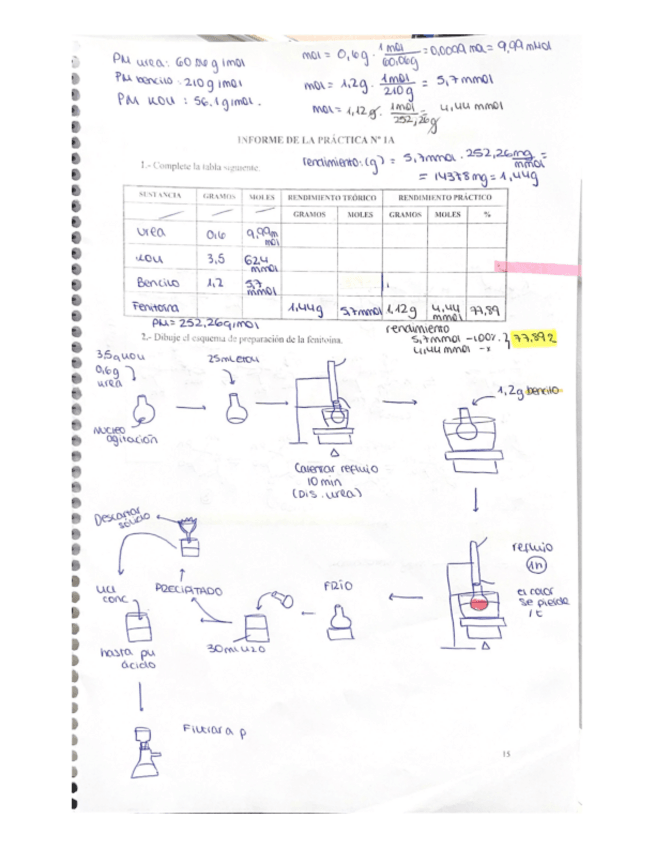 PM urea: 60.06 g/mol
mol = 0,6g · 1 mol / 60,06g = 0,0099 mol = 9,99 mmol
PM bencilo: 210 g/mol
mol = 1,2g · 1 mol / 210 g = 5,7 mmol
PM KOH : 56.1 g/mol.
mol = 1,12 g · 1 mol / 252,26g = 4,44 mmol
INFORME DE LA PRÁCTICA Nº 1A
1.- Complete la tabla siguiente.
rendimiento: (g) = 5,7mmol · 252,26 mg / mmol =
= 1437,8 mg = 1,44g
SUSTANCIA GRAMOS MOLES RENDIMIENTO TEÓRICO RENDIMIENTO PRÁCTICO
GRAMOS MOLES GRAMOS MOLES %
Urea 0,6 9,99 mmol
KOH 3,5 62,4 mmol
Bencilo 1,2 5,7 mmol
Fenitoína 1,44g 5,7mmol 1,12g 4,44 mmol 77,89
PM = 252,26g/mol
rendimiento
2.- Dibuje el esquema de preparación de la fenitoína.
5,7 mmol - 100% } 77,892
4,44 mmol - x
3,5g KOH
0,6g urea
25ml EtOH
1,2g bencilo
NUCLEO agitación
Calentar reflujo
10 min
(Dis. urea)
Descartar sólido
reflujo
1h
el color
se pierde
/ t
HCl conc
PRECIPITADO
FRÍO
30ml H2O
hasta pH ácido
Filtrar a p
15